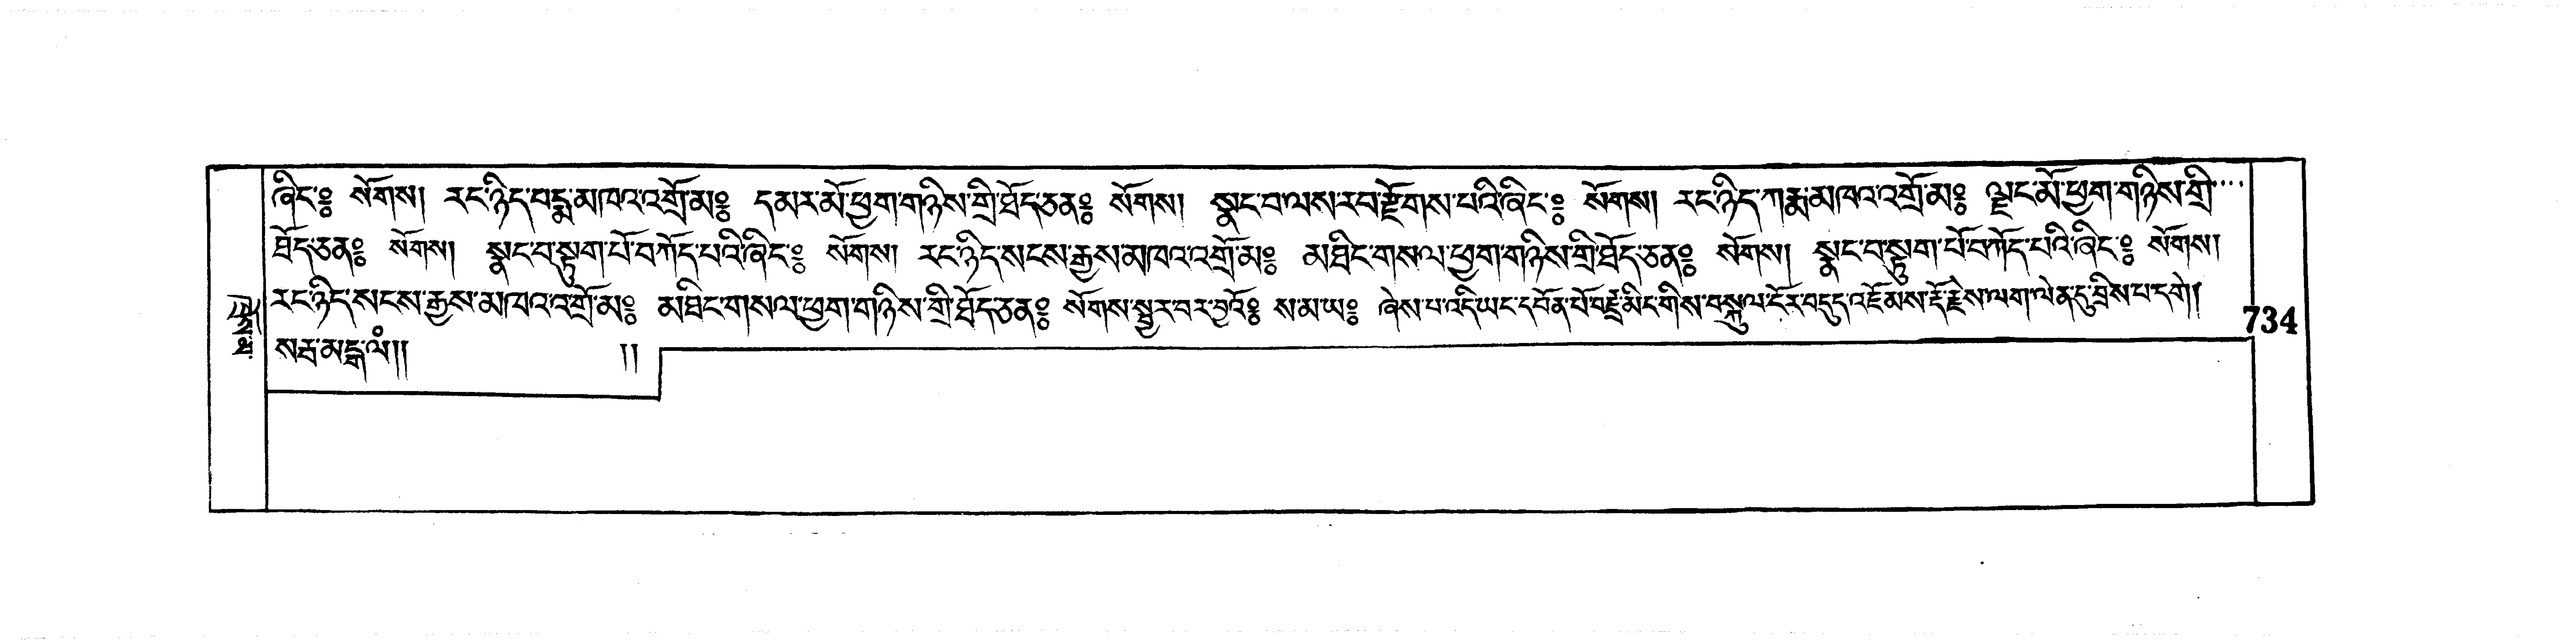 ཞིང་༔ སོགས། རང་ཉིད་པདྨ་མཁའ་འགྲོ་མ༔ དམར་མོ་ཕྱག་གཉིས་གྲི་ཐོད་ཅན༔ སོགས། སྣང་བ་ལས་རབ་རྫོགས་པའི་ཞིང་༔ སོགས། རང་ཉིད་ཀརྨ་མཁའ་འགྲོ་མ༔ ལྗང་མོ་ཕྱག་གཉིས་གྲི་····
ཐོད་ཅན༔ སོགས། སྣང་བ་སྟུག་པོ་བཀོད་པའི་ཞིང་༔ སོགས། རང་ཉིད་སངས་རྒྱས་མཁའ་འགྲོ་མ༔ མཐིང་གསལ་ཕྱག་གཉིས་གྲི་ཐོད་ཅན༔ སོགས། སྣང་བ་སྟུག་པོ་བཀོད་པའི་ཞིང་༔ སོགས།
རང་ཉིད་སངས་རྒྱས་མཁའ་འགྲོ་མ༔ མཐིང་གསལ་ཕྱག་གཉིས་གྲི་ཐོད་ཅན༔ སོགས་སྦྱར་བར་བྱའོ༔ ས་མ་ཡ༔ ཞེས་པ་འདི་ཡང་དཔོན་པོ་བཛྲ་མིང་གིས་བསྐུལ་ངོར་བདུད་འཇོམས་རྡོ་རྗེས་ལག་ལེན་དུ་བྲིས་པ་དགེ།
སརྦ་མངྒ་ལཾ།། །།
734